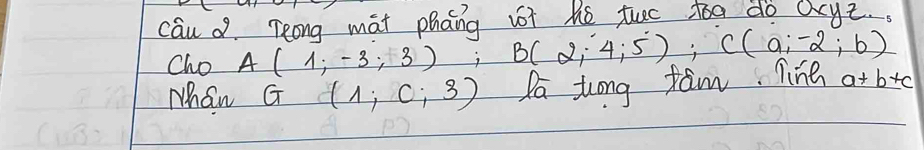 Câu 2. Trong mặt phẳng với hệ trục tọa độ Oxyz.
Cho A(1;-3;3); B(2;4;5); C(a;-2;b)
Nhận G (1;c;3) là trọng tâm. Tính a+b+c